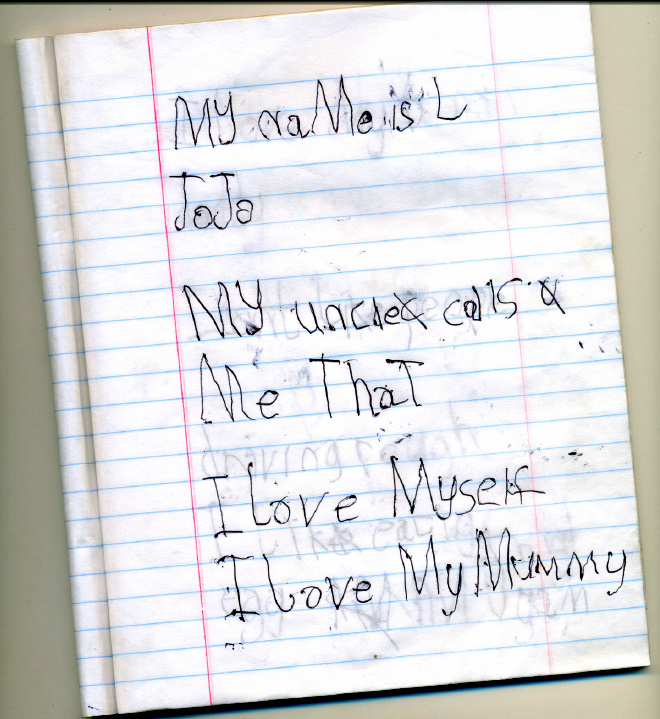 MY naMe is L
JoJo
MY uncle calls
Me ThaT
I Love Myself
I Love My Mummy